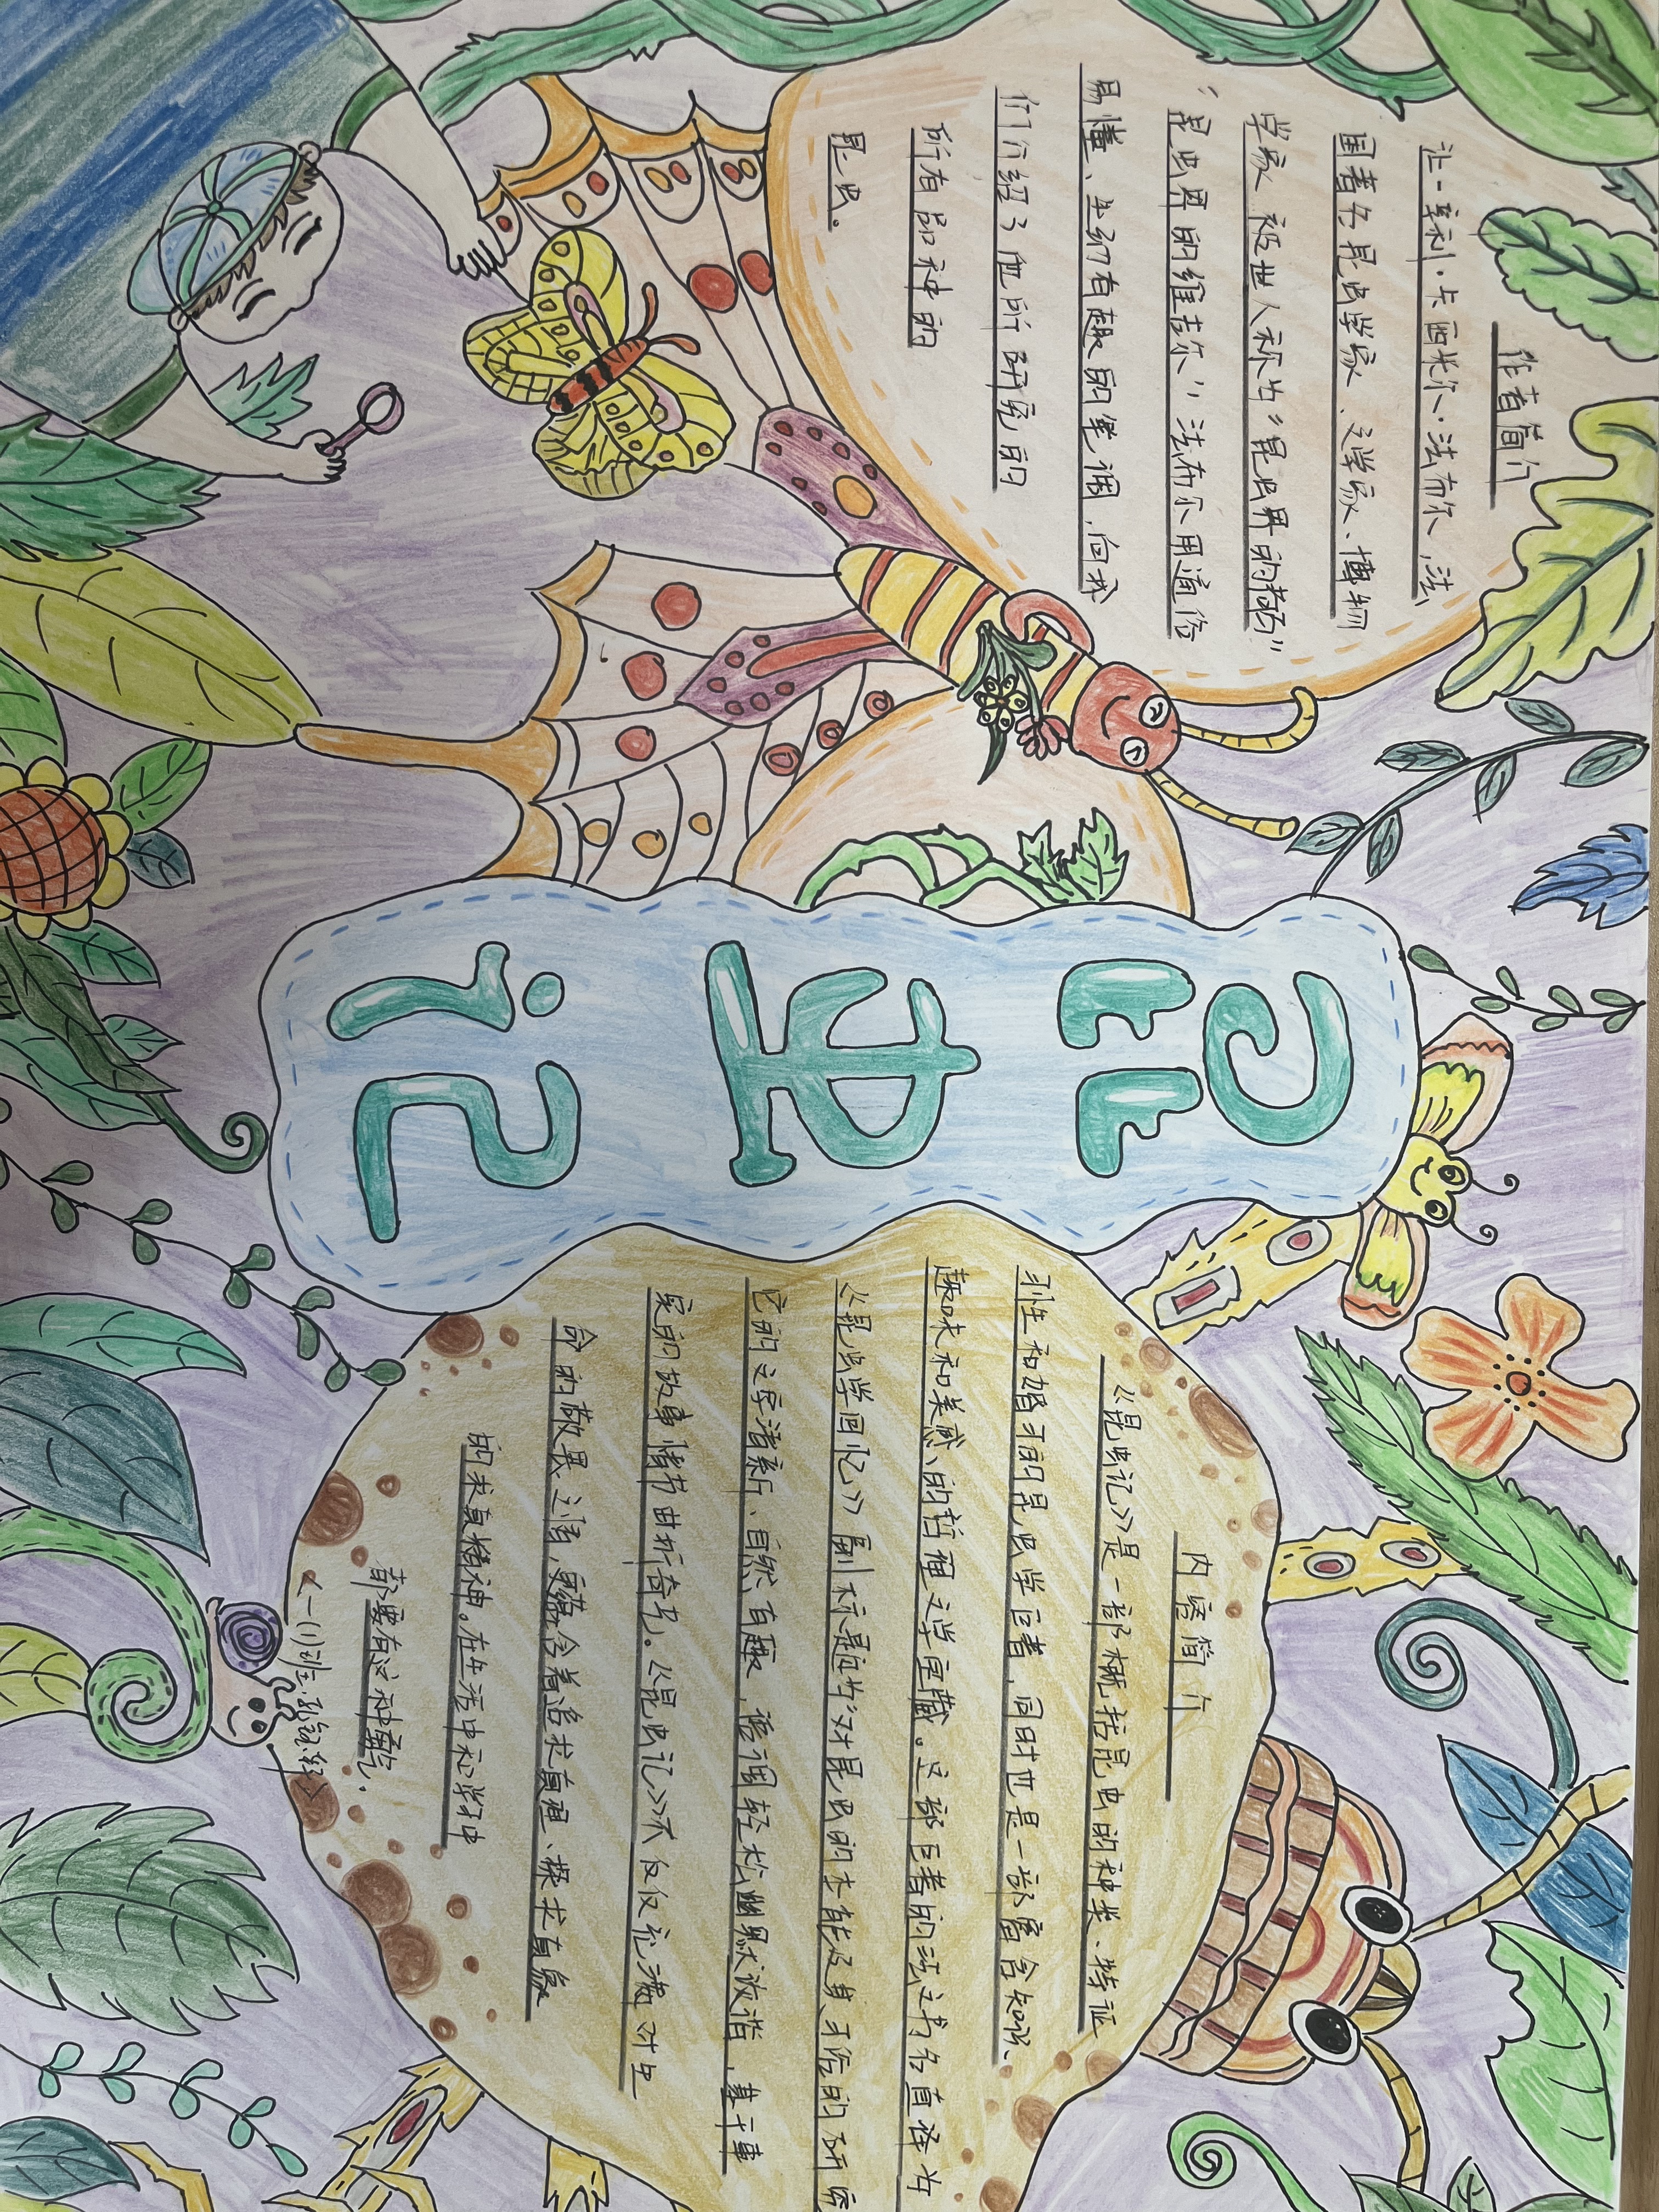 作者简介
让-亨利·卡西米尔·法布尔,法
国著名昆虫学家、文学家、博物
学家 被世人称为"昆虫界的荷马"
"昆虫界的维吉尔"法布尔用通俗
易懂、生动有趣的笔调,向我
们介绍了他所研究的
所有品种的
昆虫。
昆虫记
内容简介
《昆虫记》是一部概括昆虫的种类、特征
习性和婚习的昆虫学巨著,同时也是一部富含知识、
趣味和美感、的哲理文学宝藏。这部巨著的法文书名直译为
《昆虫学回忆》副标是为"对昆虫的本能及其习俗的研究
它的文字清新、自然有趣,语调轻松幽默诙谐,基于事
实的故事情节曲折奇异。《昆虫记》不仅仅充满对生
命的敬畏之情,更蕴含着追求真理、探求真象
的求真精神。在生活中和学习中
都要有这种勇气.